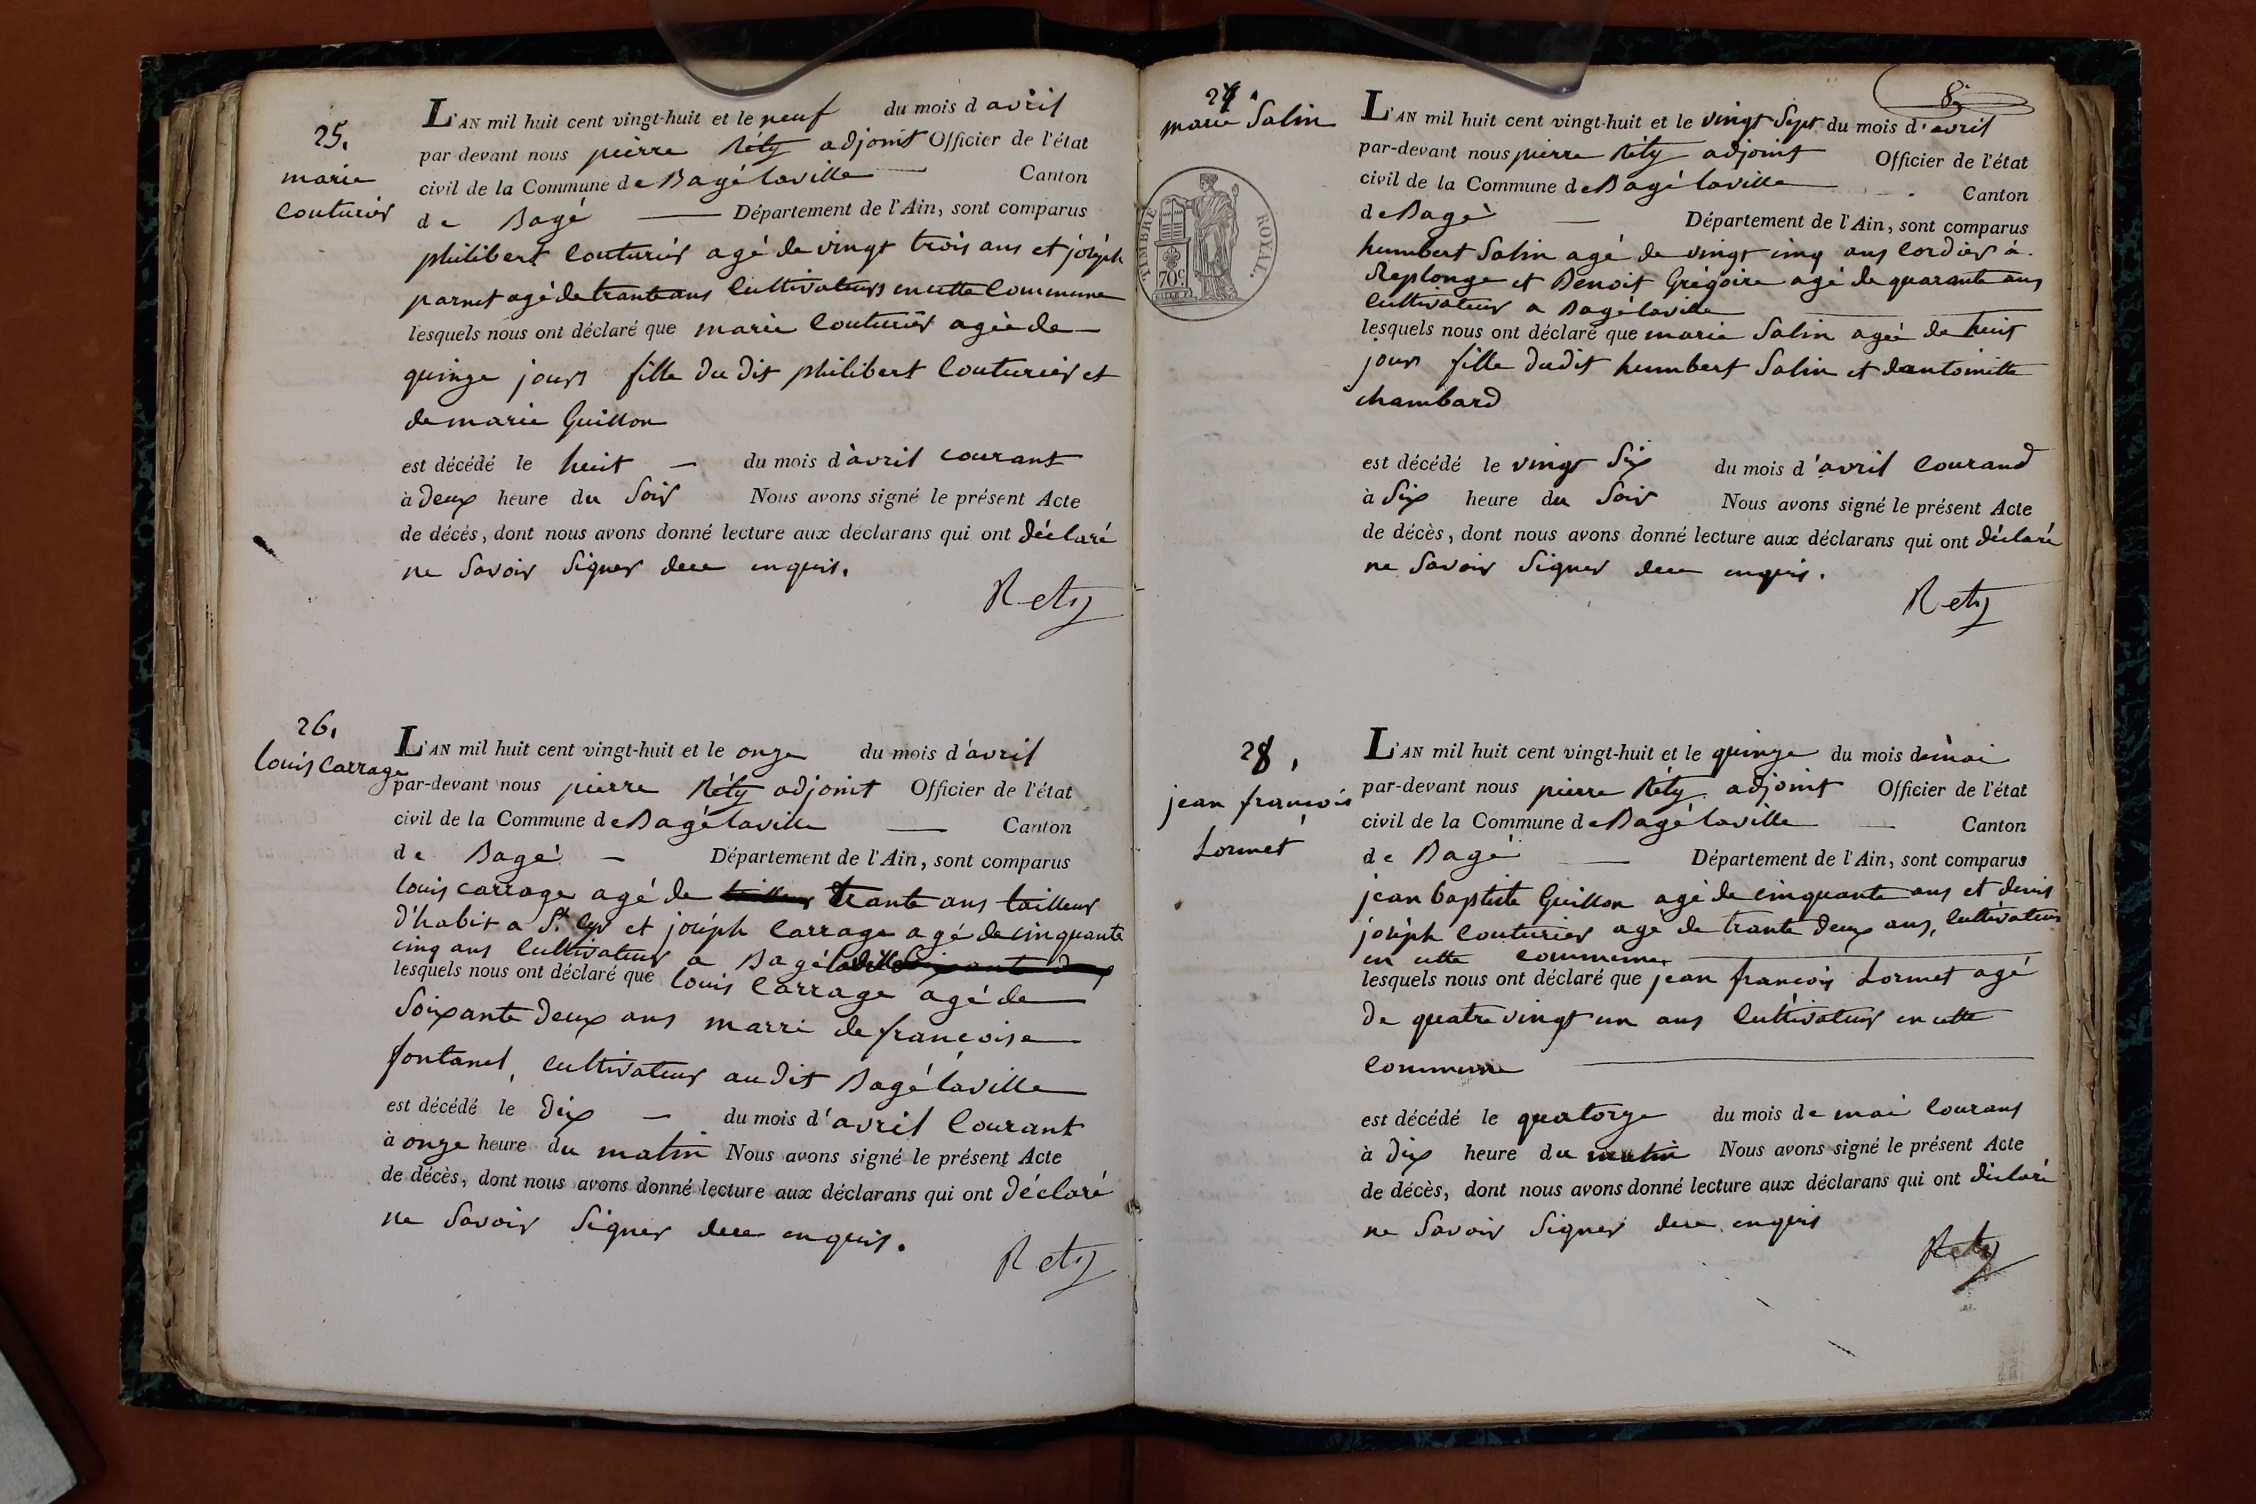 25.
marie
couturier
L'AN mil huit cent vingt-huit et le neuf du mois d avril
par-devant nous pierre Réty adjoint Officier de l'état
civil de la Commune de Bagé laville Canton
de Bagé Département de l'Ain, sont comparus
philibert couturier agé de vingt trois ans et joséph
parnet agé de trante ans cultivateurs en cette commune
lesquels nous ont déclaré que marie couturier agée de
quinze jours fille du dit philibert couturier et
de marie Guillon
est décédé le huit du mois d'avril courant
à deux heure du soir Nous avons signé le présent Acte
de décès, dont nous avons donné lecture aux déclarans qui ont déclaré
ne savoir signer de ce enquis.
Rety
26.
louis carrage
L'AN mil huit cent vingt-huit et le onze du mois d'avril
par-devant nous pierre Réty adjoint Officier de l'état
civil de la Commune de Bagé laville Canton
de Bagé Département de l'Ain, sont comparus
louis carrage agé de trante ans tailleur
d'habit a St. cyr et joséph carrage agé de cinquante
cinq ans cultivateur a Bagé laville
lesquels nous ont déclaré que louis carrage agé de
soixante deux ans marri de françoise
fontanel, cultivateur audit Bagé laville
est décédé le dix du mois d'avril courant
à onze heure du matin Nous avons signé le présent Acte
de décès, dont nous avons donné lecture aux déclarans qui ont déclaré
ne savoir signer de ce enquis.
Rety
8
27
marie Salin
TIMBRE ROYAL
70 c.
L'AN mil huit cent vingt-huit et le vingt sept du mois d'avril
par-devant nous pierre Réty adjoint Officier de l'état
civil de la Commune de Bagé laville Canton
de Bagé Département de l'Ain, sont comparus
humbert Salin agé de vingt cinq ans cordier à
Replonge et Benoit Grégoire agé de quarante ans
cultivateur a Bagé laville
lesquels nous ont déclaré que marie Salin agée de huit
jours fille dudit humbert Salin et dantoinette
chambard
est décédé le vingt six du mois d'avril courand
à six heure du soir Nous avons signé le présent Acte
de décès, dont nous avons donné lecture aux déclarans qui ont déclaré
ne savoir signer de ce enquis.
Rety
28.
jean françois
Lormet
L'AN mil huit cent vingt-huit et le quinze du mois de mai
par-devant nous pierre Réty adjoint Officier de l'état
civil de la Commune de Bagé laville Canton
de Bagé Département de l'Ain, sont comparus
jean baptiste Guillon agé de cinquante ans et denis
joséph couturier agé de trante deux ans, cultivateurs
en cette commune
lesquels nous ont déclaré que jean françois Lormet agé
de quatre vingt un ans cultivateur en cette
commune
est décédé le quatorze du mois de mai courant
à dix heure du matin Nous avons signé le présent Acte
de décès, dont nous avons donné lecture aux déclarans qui ont déclaré
ne savoir signer de ce enquis
Rety